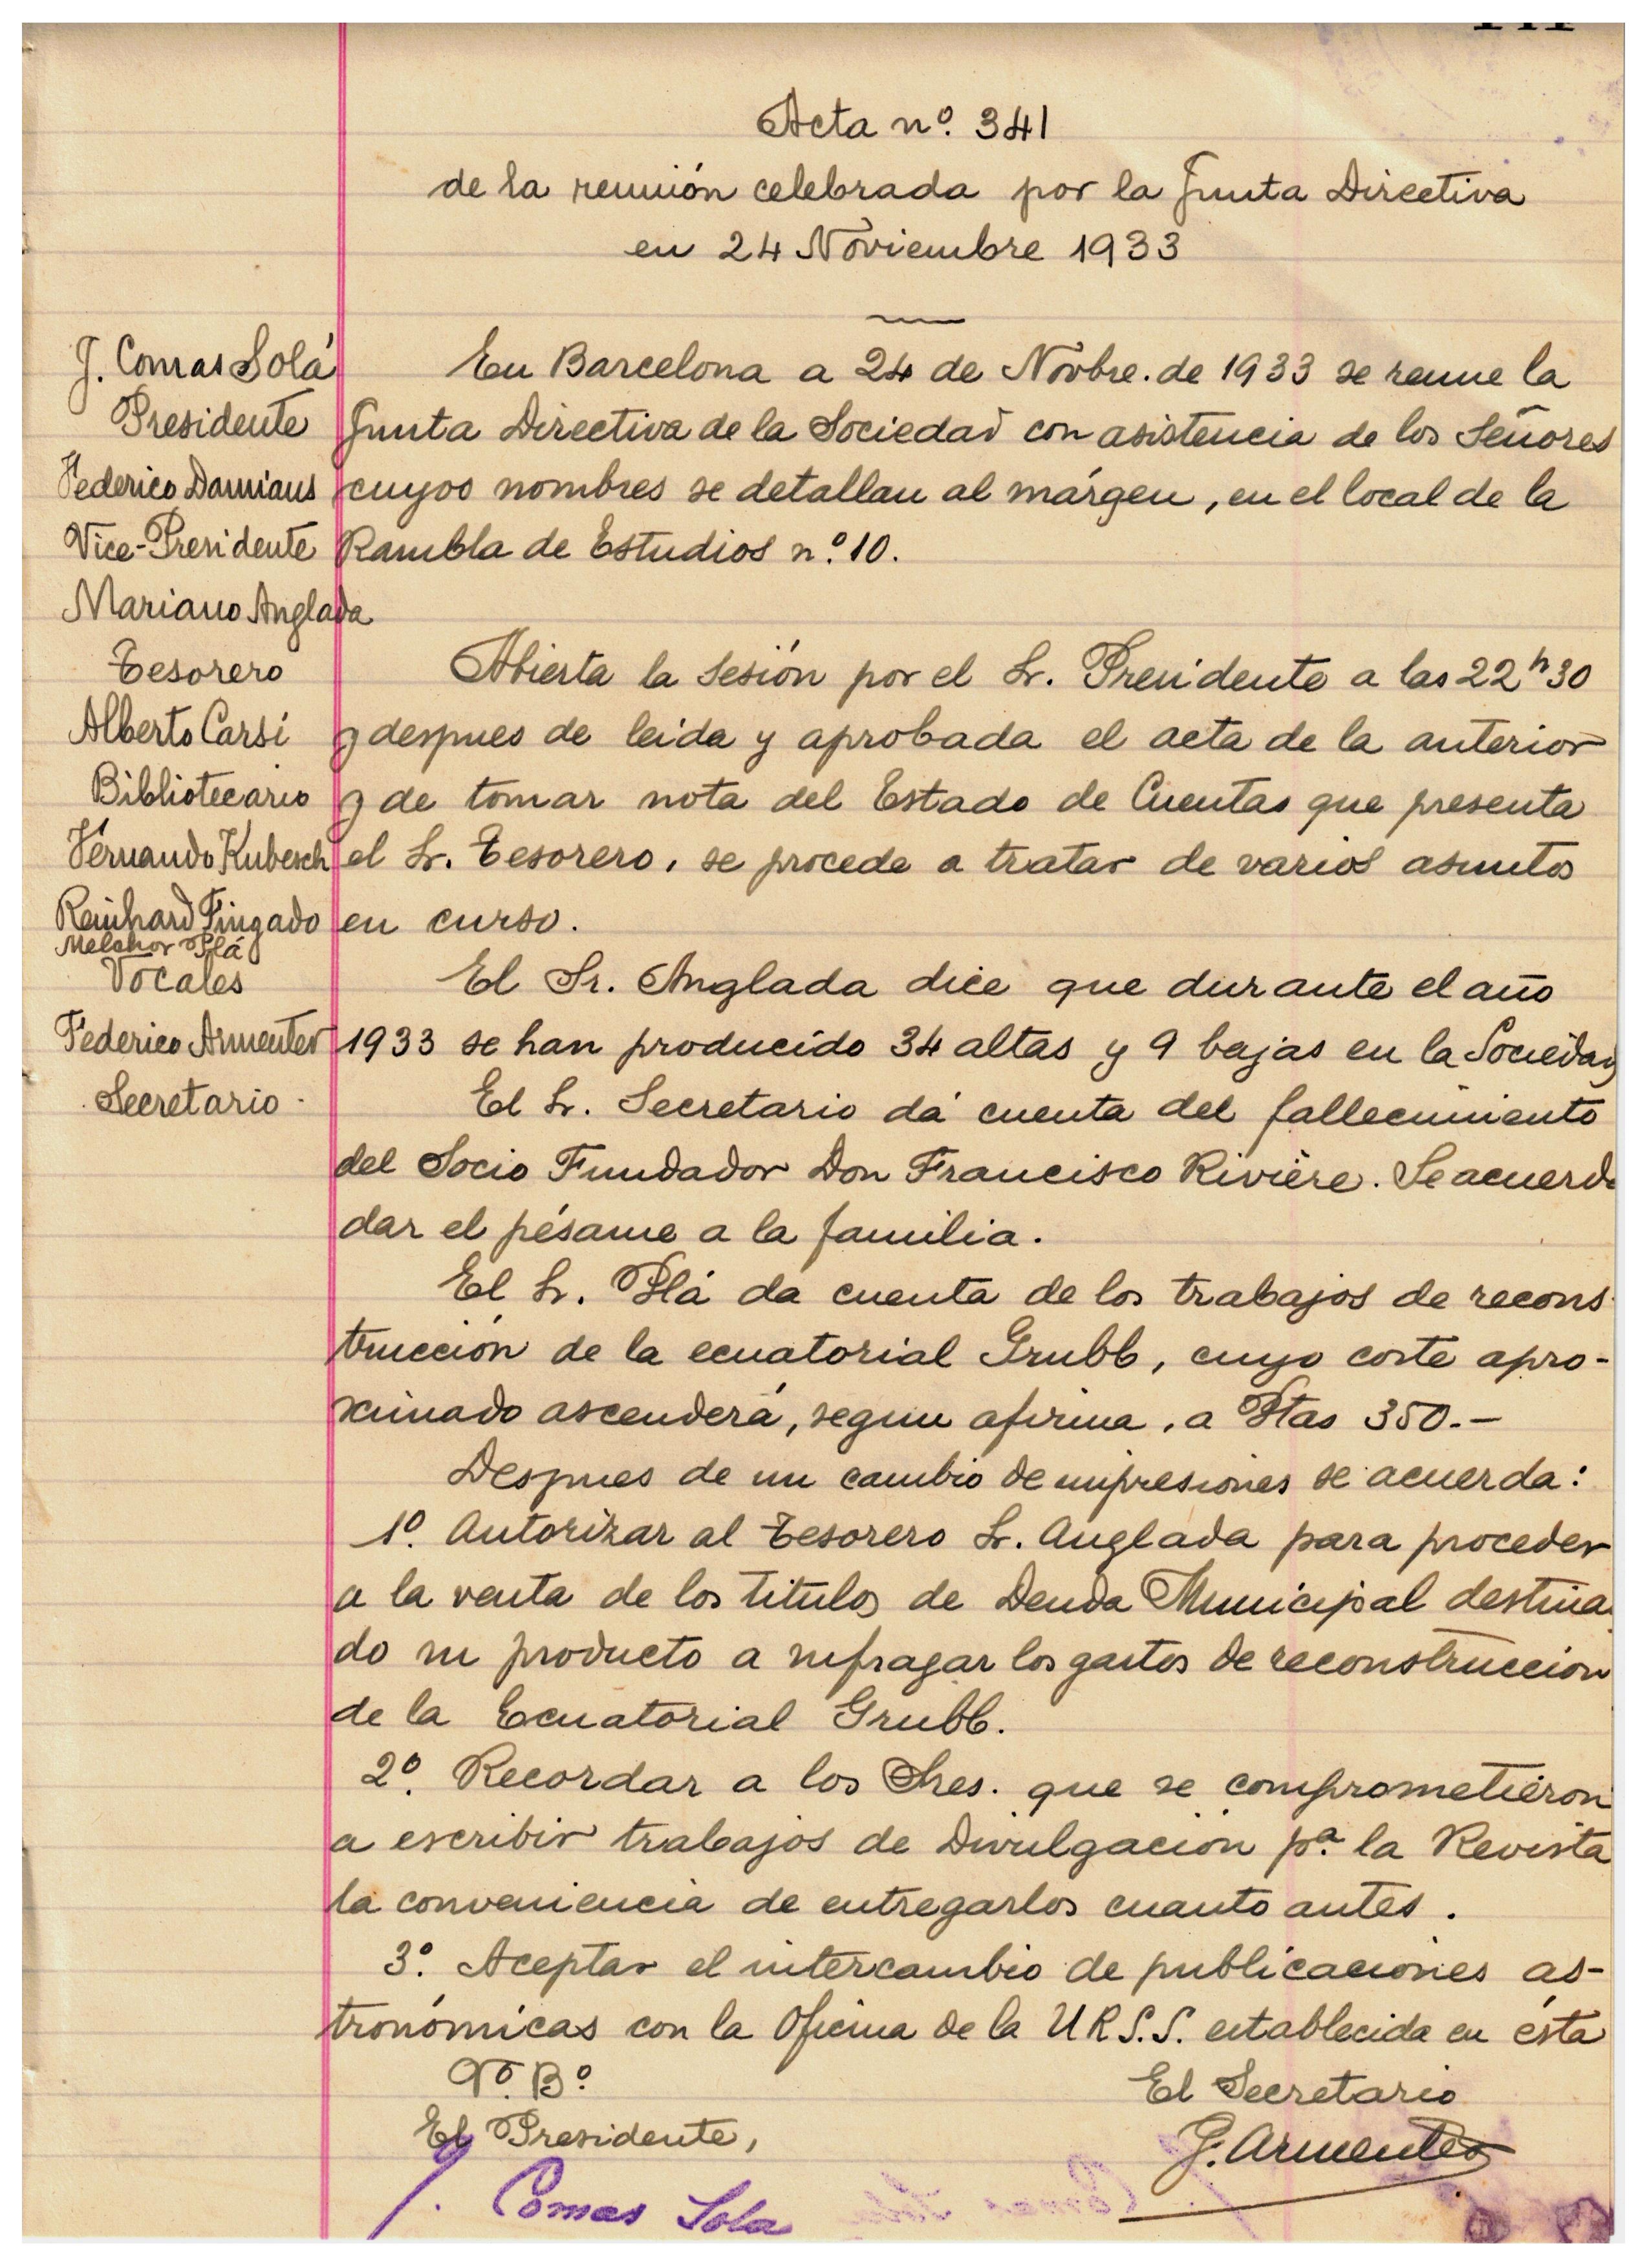 Acta nº. 341
de la reunión celebrada por la Junta Directiva
en 24 Noviembre 1933
J. Comas Solá
Presidente
Federico Damians
Vice-Presidente
Mariano Anglada
Tesorero
Alberto Carsi
Bibliotecario
Fernando Kubesch
Reinhard Fingado
Melchor Plá
Vocales
Federico Armenter
Secretario.
En Barcelona a 24 de Novbre. de 1933 se reune la
Junta Directiva de la Sociedad con asistencia de los Señores
cuyos nombres se detallan al márgen, en el local de la
Rambla de Estudios n.º 10.
Abierta la sesión por el Sr. Presidente a las 22h30
y despues de leida y aprobada el acta de la anterior
y de tomar nota del Estado de Cuentas que presenta
el Sr. Tesorero, se procede a tratar de varios asuntos
en curso.
El Sr. Anglada dice que durante el año
1933 se han producido 34 altas y 9 bajas en la Sociedad
El Sr. Secretario dá cuenta del fallecimiento
del Socio Fundador Don Francisco Rivière. Se acuerda
dar el pésame a la familia.
El Sr. Plá da cuenta de los trabajos de recons
trucción de la ecuatorial Grubb, cuyo coste apro-
ximado ascenderá, segun afirma, a Ptas 350.-
Despues de un cambio de impresiones se acuerda:
1º. Autorizar al Tesorero Sr. Anglada para proceder
a la venta de los titulos de Deuda Municipal destina
do su producto a sufragar los gastos de reconstruccion
de la Ecuatorial Grubb.
2º. Recordar a los Sres. que se comprometieron
a escribir trabajos de Divulgacion pª. la Revista
la conveniencia de entregarlos cuanto antes.
3º. Aceptar el intercambio de publicaciones as-
tronómicas con la Oficina de la U R S.S. establecida en ésta
Vº. Bº.
El Presidente,
J. Comas Sola
El Secretario
F. Armenter